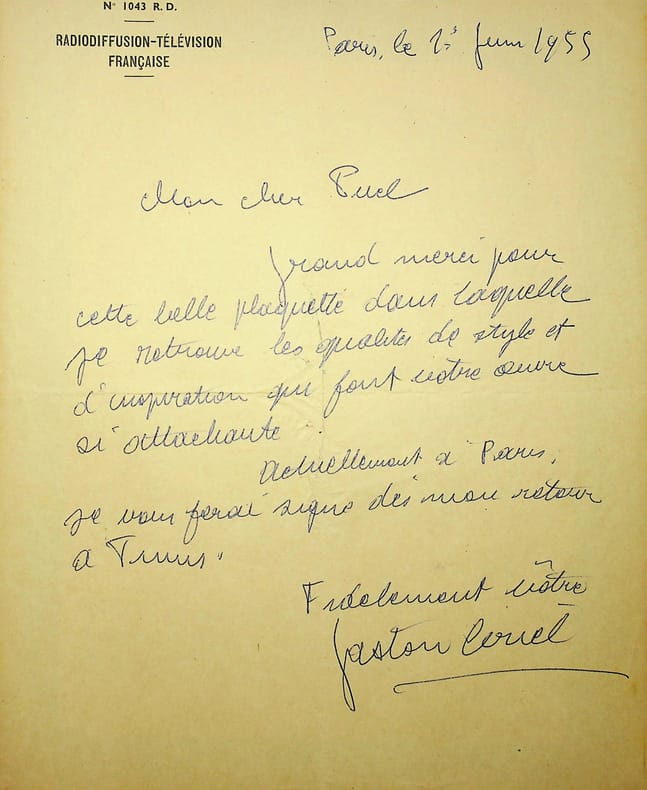 N° 1043 R.D.
RADIODIFFUSION-TÉLÉVISION
FRANÇAISE
Paris, le 1er Juin 1955
Mon cher Puel
Grand merci pour
cette belle plaquette dans laquelle
je retrouve les qualités de style et
d'inspiration qui font votre œuvre
si attachante.
Actuellement à Paris,
je vous ferai signe dès mon retour
à Tunis.
Fidèlement vôtre
Gaston